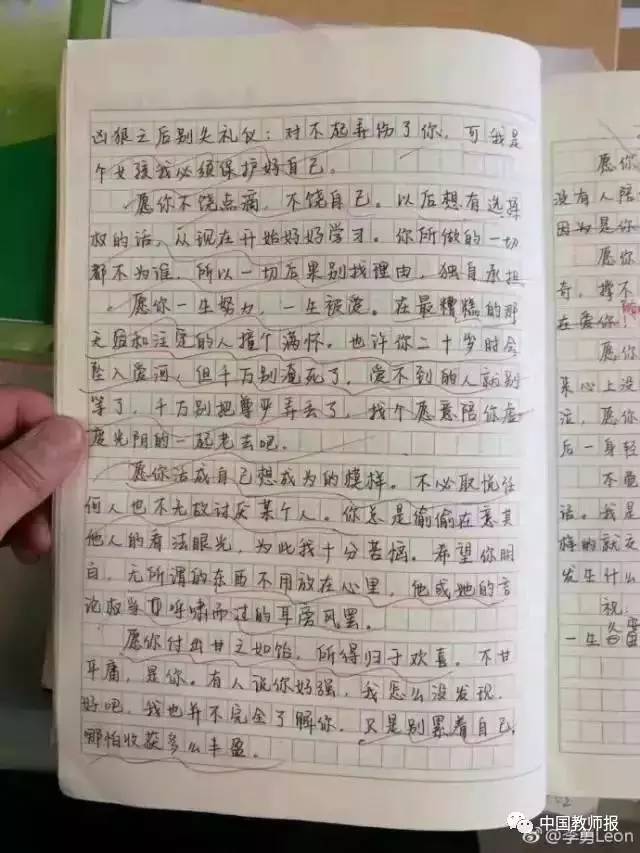 凶狠之后别失礼仪：对不起弄伤了你，可我是
个女孩我必须保护好自己。
愿你不饶点病，不饶自己。以后想有选择
权的话，从现在开始好好学习。你所做的一切
都不为谁，所以一切后果别找理由，独自承担
愿你一生努力，一生被爱。在最糟糕的那
天给和注定的人撞个满怀。也许你二十岁时会
坠入爱河，但千万别淹死了，爱不到的人就别
等了，千万别把尊严弄丢了，找个愿意陪你虚
度光阴的一起老去吧。
愿你活成自己想成为的模样。不必取悦任
何人也不无故讨厌某个人。你总是偷偷在意其
他人的看法眼光，为此我十分苦恼。希望你明
白，无所谓的东西不用放在心里，他或她的言
论权当呼啸而过的耳旁风罢。
愿你付出甘之如饴，所得归于欢喜。不甘
平庸，是你。有人说你好强，我怎么没发现，
好吧，我也并不完全了解你，只是别累着自己，
哪怕收获多么丰盈。
愿你
没有人陪
因为是你
愿你
奇，撑不
在爱你！
愿你
来心上没
泣，愿你
后一身轻
不
话。我是
族的就
发生什么
祝：
一生
中国教师报
@李勇Leon